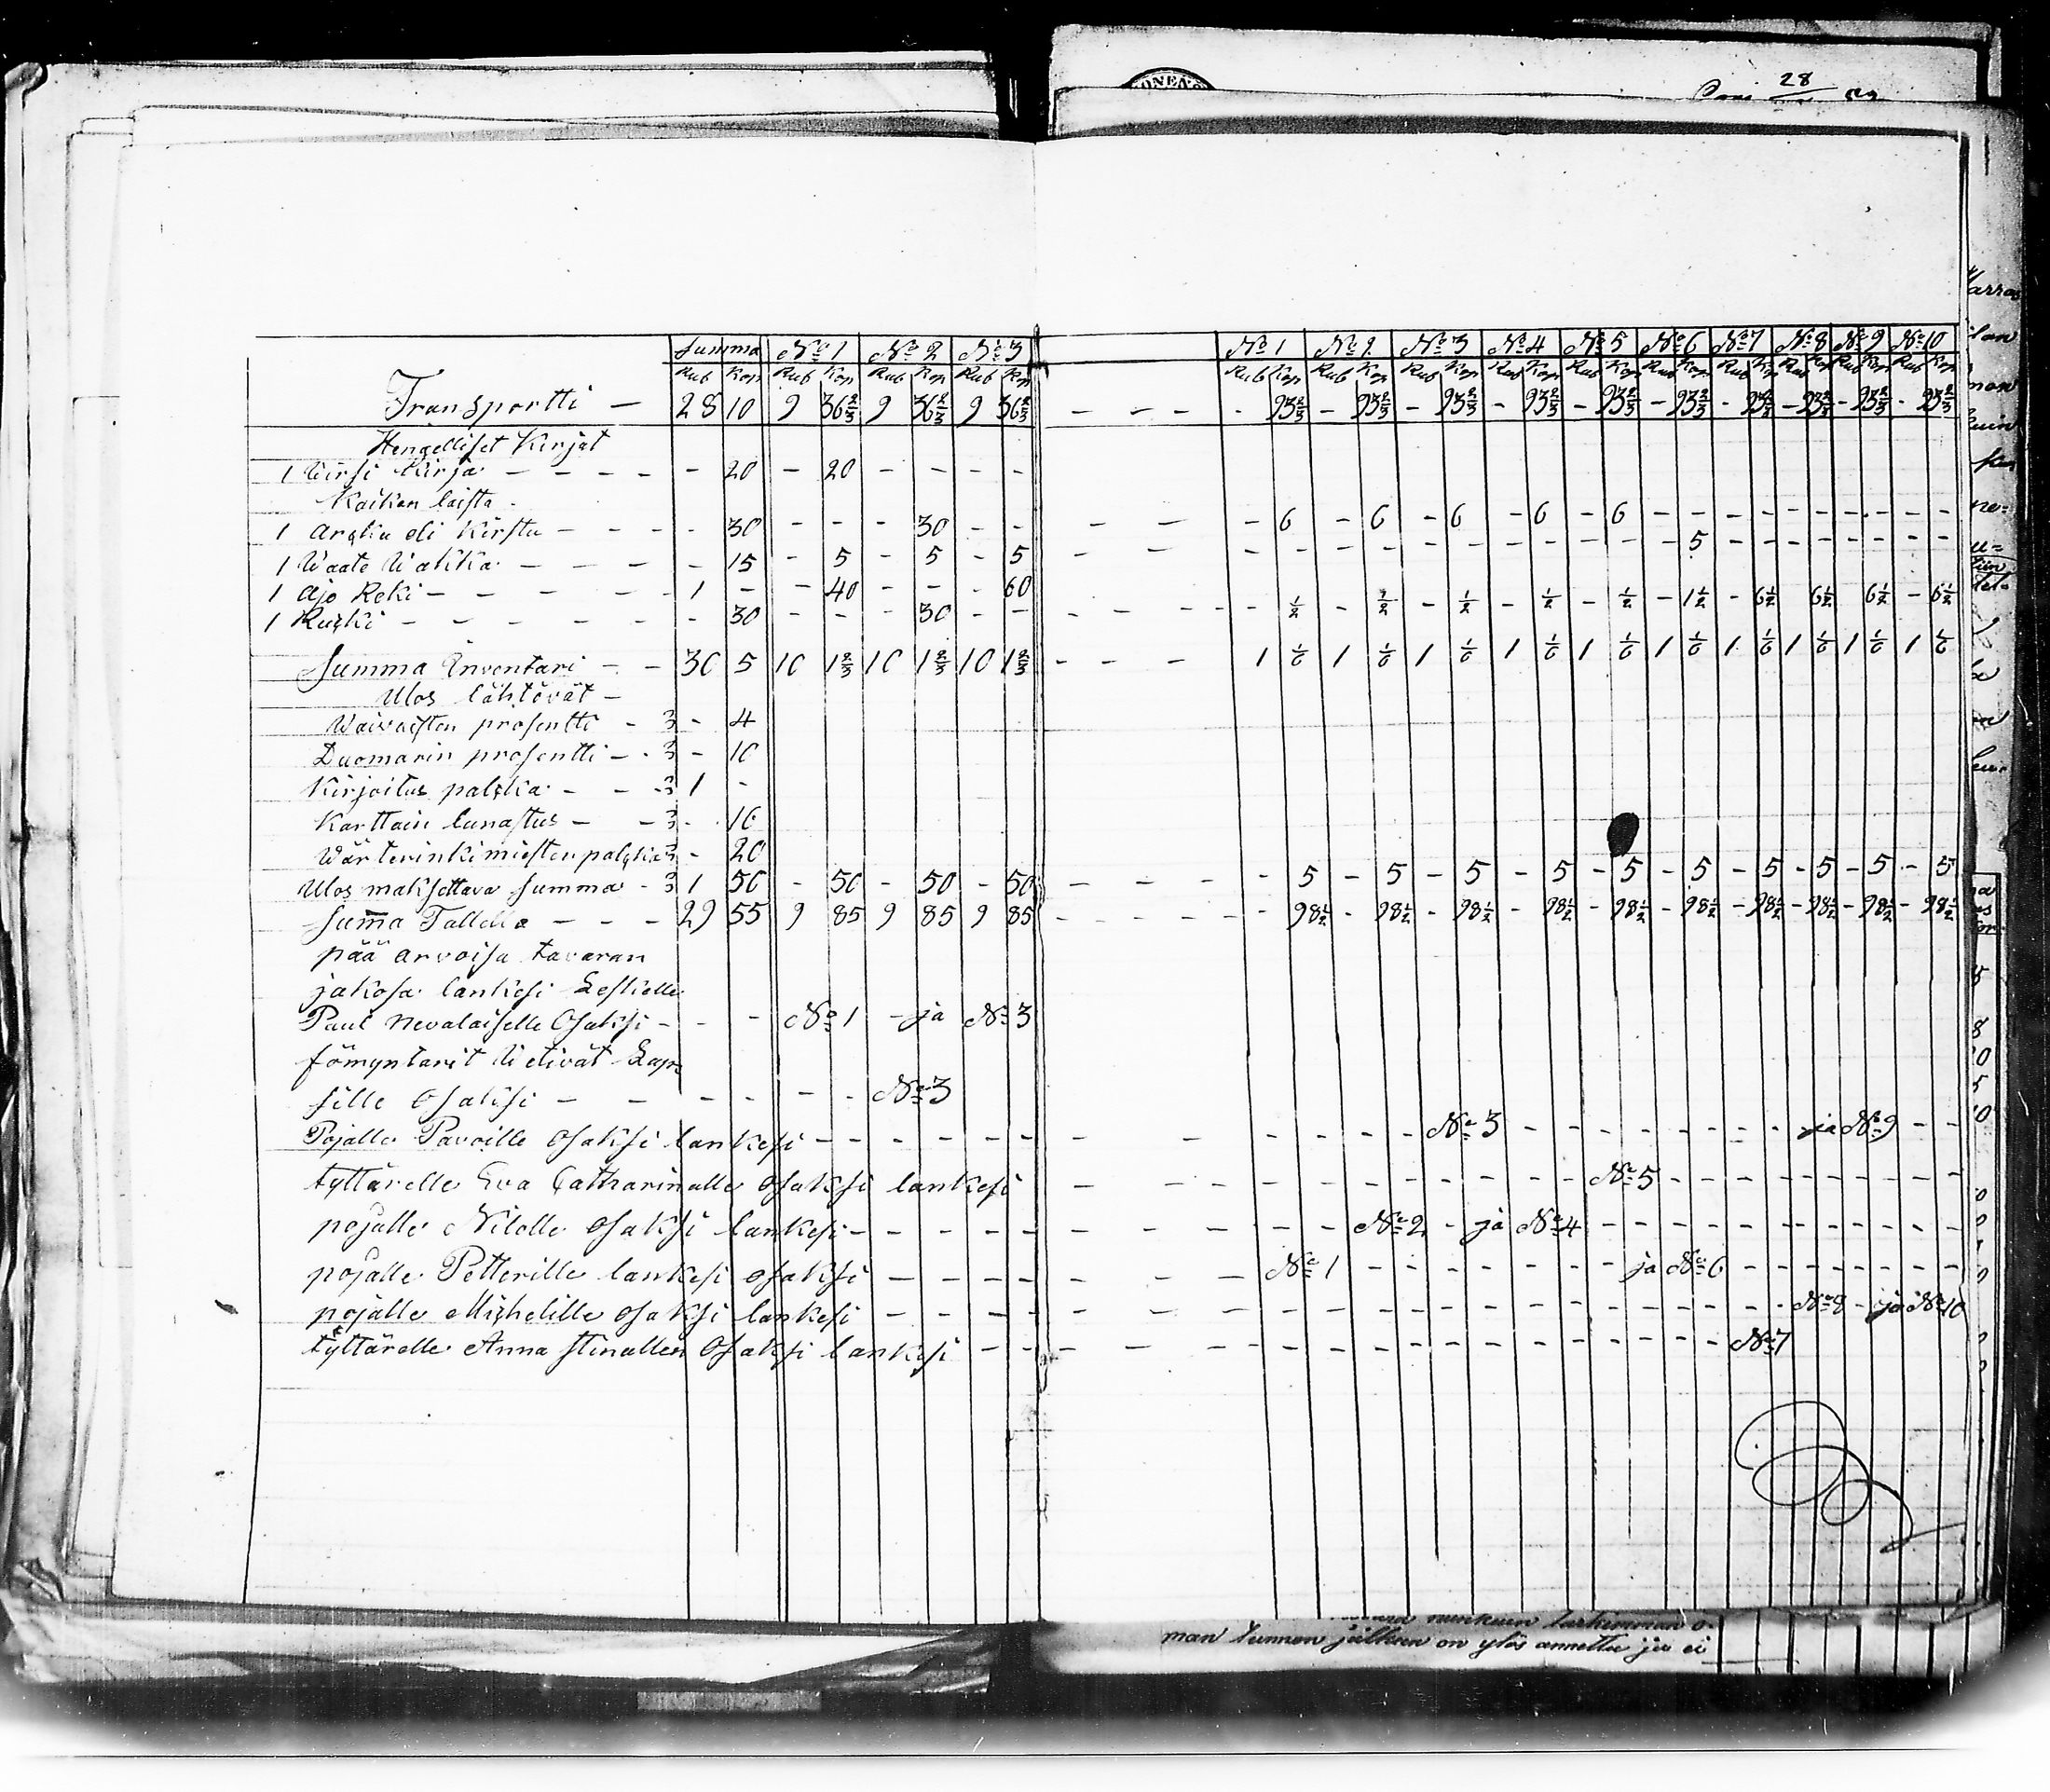 28
Summa No 1 No 2 No 3 No 1 No 2 No 3 No 4 No 5 No 6 No 7 No 8 No 9 No 10
Rub Kop Rub Kop Rub Kop Rub Kop Rub Kop Rub Kop Rub Kop Rub Kop Rub Kop Rub Kop Rub Kop Rub Kop Rub Kop Rub Kop
Transportti — 28 10 9 36 2/3 9 36 2/3 9 36 2/3 - - - - 93 2/3 - 93 2/3 - 93 2/3 - 93 2/3 - 93 2/3 - 93 2/3 - 93 2/3 - 93 2/3 - 93 2/3 - 93 2/3
Hengelliset Kirjat
1 Virsi Kirja - - - - - 20 - 20 - - - -
Kaiken laista
1 Arkku eli Kirstu - - - - 30 - - - 30 - - - - - 6 - 6 - 6 - 6 - 6 - - - - - - - - - -
1 Waate Wakka - - - - 15 - 5 - 5 - 5 - - - - - - - - - - - - - 5 - - - - - - - -
1 Ajo Reki - - - - - 1 - - 40 - - - 60
1 Ruski - - - - - - 30 - - - 30 - - - - - - 1/2 - 1/2 - 1/2 - 1/2 - 1/2 - 1 1/2 - 6 1/2 6 1/2 6 1/2 - 6 1/2
Summa Inventari - - 30 5 10 1 2/3 10 1 2/3 10 1 2/3 - - - 1 1/6 1 1/6 1 1/6 1 1/6 1 1/6 1 1/6 1 1/6 1 1/6 1 1/6 1 1/6
Ulos lähtövät -
Waivaisten prosentti - 3 - 4
Duomarin prosentti - - 3 - 10
Kirjoitus palkka - - - 3 1 -
Karttain lunastus - - 3 - 16
Wärterinki miesten palkka 3 - 20
Ulos maksettava summa - 3 1 50 - 50 - 50 - 50 - - - - 5 - 5 - 5 - 5 - 5 - 5 - 5 - 5 - 5 - 5
Summa Tallella - - - 29 55 9 85 9 85 9 85 - - - - - 98 1/2 - 98 1/2 - 98 1/2 - 98 1/2 - 98 1/2 - 98 1/2 - 98 1/2 - 98 1/2 - 98 1/2 - 98 1/2
pää arvoisa tavaran
jakosa lankesi Leskelle
Paul Nevalaiselle Osaksi - - - No 1 - ja No 3
fömyntarit Vetivät Lap
sille Osaksi - - - - - - No 3
Pojalle Pavoille Osaksi lankesi - - - - - - - - - - - - - No 3 - - - - - - - ja No 9 - -
tyttärelle Eva Catharinalle Osaksi lankesi - - - - - - - - - - - No 5 - - - - - - - -
pojalle Nilelle Osaksi lankesi - - - - - - - - - - - No 2 - ja No 4 - - - - - - - - - -
pojalle Petterille lankesi osaksi - - - - - - - - No 1 - - - - - - - ja No 6 - - - - - - - -
pojalle Mishelille Osaksi lankesi - - - - - - - - - - - - - - - - - - - No 8 - ja No 10
tyttärelle Anna Stinallen Osaksi lankesi - - - - - - - - - - - - - - - No 7
man tunnon jälkeen on ylös annettu ja ei